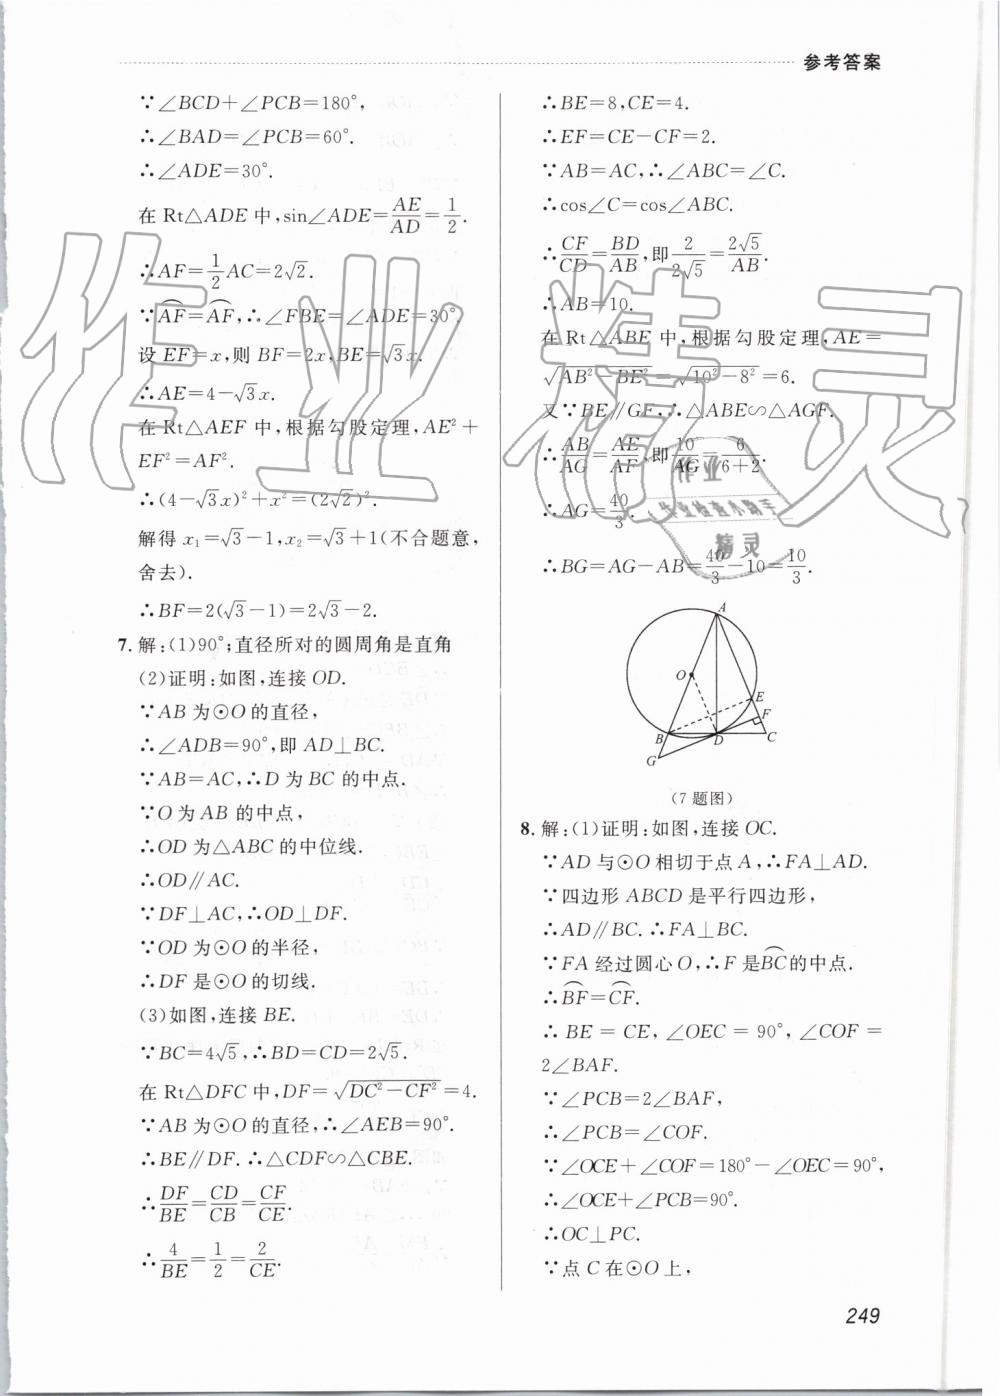 参考答案
∵∠BCD+∠PCB=180°,
∴∠BAD=∠PCB=60°.
∴∠ADE=30°.
在 Rt△ADE 中,sin∠ADE=AE/AD=1/2.
∴AF=1/2AC=2√2.
∵⌒AF=⌒AF,∴∠FBE=∠ADE=30°.
设 EF=x,则 BF=2x,BE=√3x.
∴AE=4-√3x.
在 Rt△AEF 中,根据勾股定理,AE²+
EF²=AF².
∴(4-√3x)²+x²=(2√2)².
解得 x₁=√3-1,x₂=√3+1(不合题意,
舍去).
∴BF=2(√3-1)=2√3-2.
7. 解:(1)90°;直径所对的圆周角是直角
(2)证明:如图,连接 OD.
∵AB 为⊙O 的直径,
∴∠ADB=90°,即 AD⊥BC.
∵AB=AC,∴D 为 BC 的中点.
∵O 为 AB 的中点,
∴OD 为△ABC 的中位线.
∴OD∥AC.
∵DF⊥AC,∴OD⊥DF.
∵OD 为⊙O 的半径,
∴DF 是⊙O 的切线.
(3)如图,连接 BE.
∵BC=4√5,∴BD=CD=2√5.
在 Rt△DFC 中,DF=√(DC²-CF²)=4.
∵AB 为⊙O 的直径,∴∠AEB=90°.
∴BE∥DF.∴△CDF∽△CBE.
∴DF/BE=CD/CB=CF/CE.
∴4/BE=1/2=2/CE.
∴BE=8,CE=4.
∴EF=CE-CF=2.
∵AB=AC,∴∠ABC=∠C.
∴cos∠C=cos∠ABC.
∴CF/CD=BD/AB,即2/(2√5)=2√5/AB.
∴AB=10.
在 Rt△ABE 中,根据勾股定理,AE=
√(AB²-BE²)=√(10²-8²)=6.
又∵BE∥GF,∴△ABE∽△AGF.
∴AB/AG=AE/AF,即10/AG=6/(6+2).
∴AG=40/3.
∴BG=AG-AB=40/3-10=10/3.
A
O
E
F
B
D
C
G
(7 题图)
8. 解:(1)证明:如图,连接 OC.
∵AD 与⊙O 相切于点 A,∴FA⊥AD.
∵四边形 ABCD 是平行四边形,
∴AD∥BC.∴FA⊥BC.
∵FA 经过圆心 O,∴F 是⌒BC的中点.
∴⌒BF=⌒CF.
∴BE=CE,∠OEC=90°,∠COF=
2∠BAF.
∵∠PCB=2∠BAF,
∴∠PCB=∠COF.
∵∠OCE+∠COF=180°-∠OEC=90°,
∴∠OCE+∠PCB=90°.
∴OC⊥PC.
∵点 C 在⊙O 上,
249
作业精灵
作业
作业检查小助手
精灵